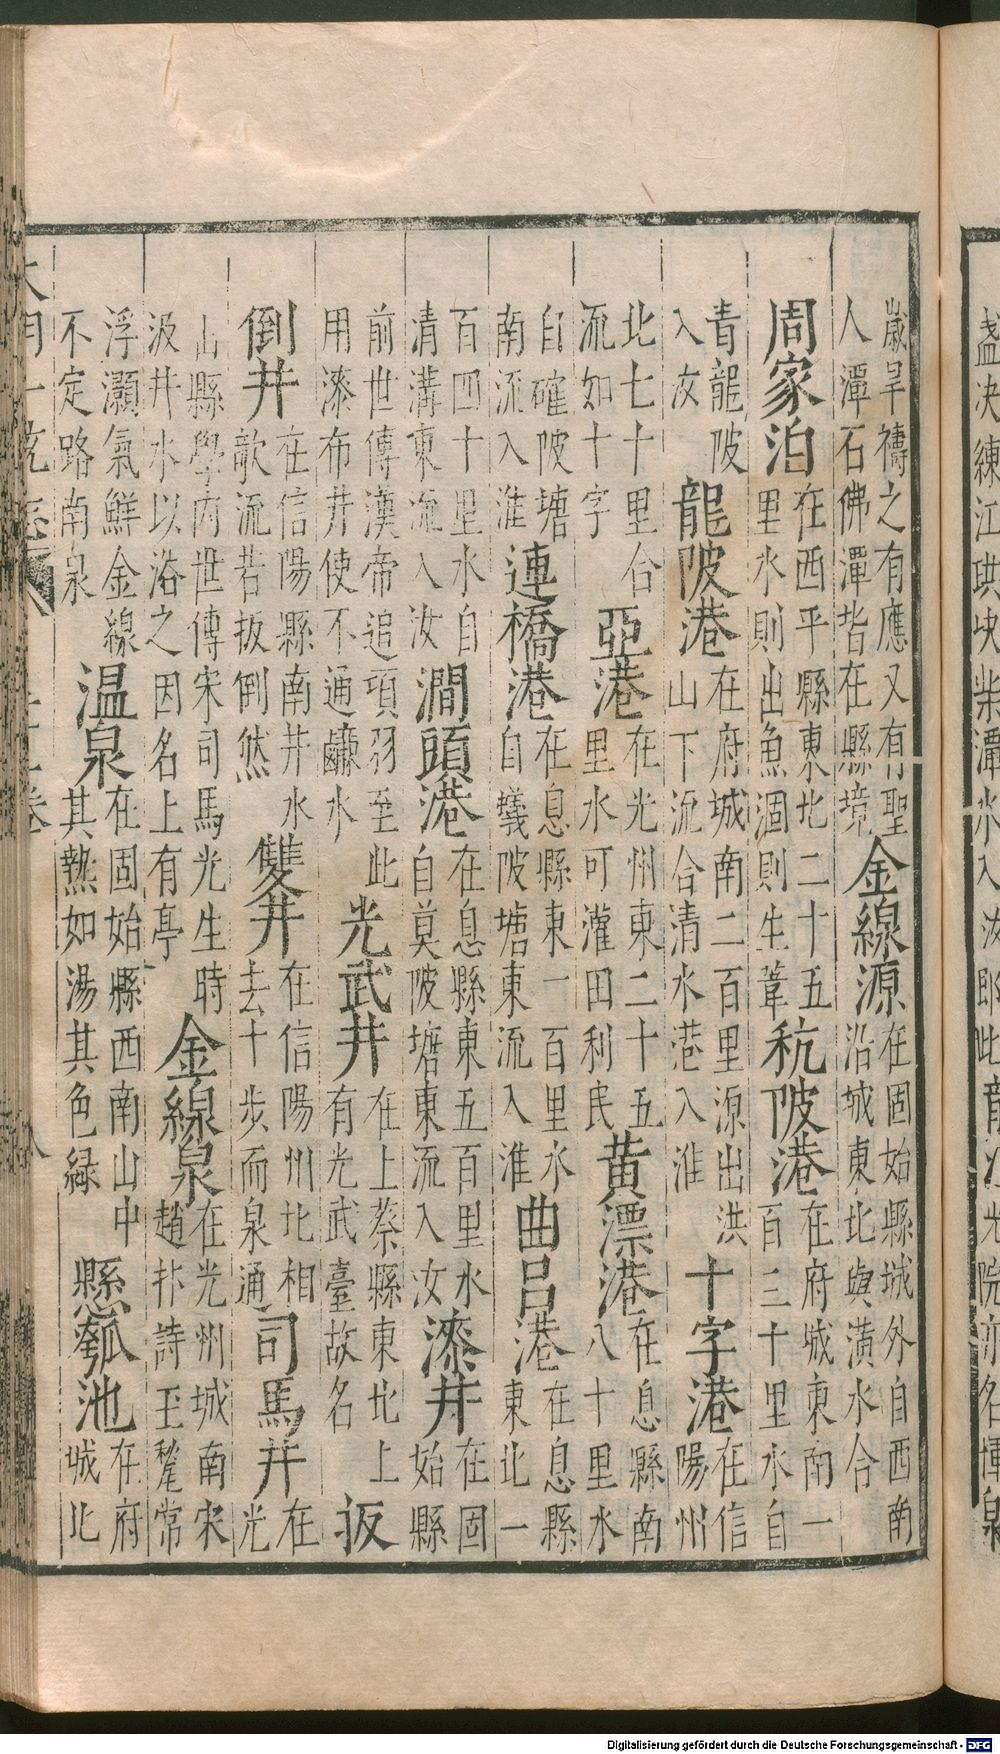 歲旱禱之有應又有聖人潭石佛潭皆在縣境金線源在固始縣城外自西南沿城東北與潢水合
周家泊在西平縣東北二十五里水則出魚涸則生葦秔陂港在府城東南一百三十里水自
青龍陂入汝龍陂港在府城南二百里源出洪山下流合清水港入淮十字港在信陽州
北七十里合流如十字亞港在光州東二十五里水可灌田利民黃漂港在息縣南八十里水
自確陂塘南流入淮連橋港在息縣東一百里水自蟻陂塘東流入淮曲呂港在息縣東北一
百四十里水自清溝東流入汝澗頭港在息縣東五百里水自莫陂塘東流入汝漆井在固始縣
前世傳漢帝追項羽至此用漆布井使不通鹹水光武井在上蔡縣東北上有光武臺故名扳
倒井在信陽縣南井水欹流若扳倒然雙井在信陽州北相去十步而泉通司馬井在光
山縣學內世傳宋司馬光生時汲井水以浴之因名上有亭金線泉在光州城南宋趙抃詩玉甃常
浮灝氣鮮金線不定路南泉温泉在固始縣西南山中其熱如湯其色緑懸瓠池在府城北
大明一統志
Digitalisierung gefördert durch die Deutsche Forschungsgemeinschaft - DFG